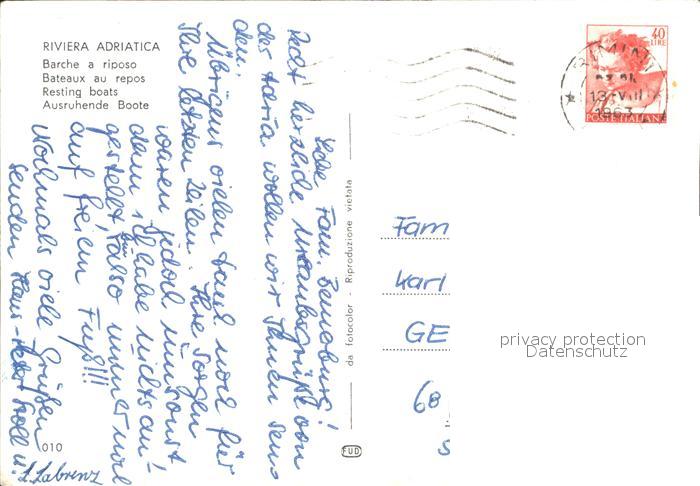 RIVIERA ADRIATICA
Barche a riposo
Bateaux au repos
Resting boats
Ausruhende Boote
Liebe Fam. Benneburg!
Recht herzliche Urlaubsgrüße von
der Adria wollen wir Ihnen sen-
den.
Übrigens vielen Dank noch für
Ihre letzten Zeilen. Ihre Sorgen
waren jedoch umsonst
denn ich habe nichts an-
gestellt, bin also immer noch
auf freiem Fuß!!!
Nochmals viele Grüße
senden Hans-Peter Troll u.
L. Labrenz
010
da fotocolor - Riproduzione vietata
FUD
40
LIRE
RIMINI
13-VIII
1963
POSTE ITALIANE
Fam
Karl
GE
68
S
privacy protection
Datenschutz